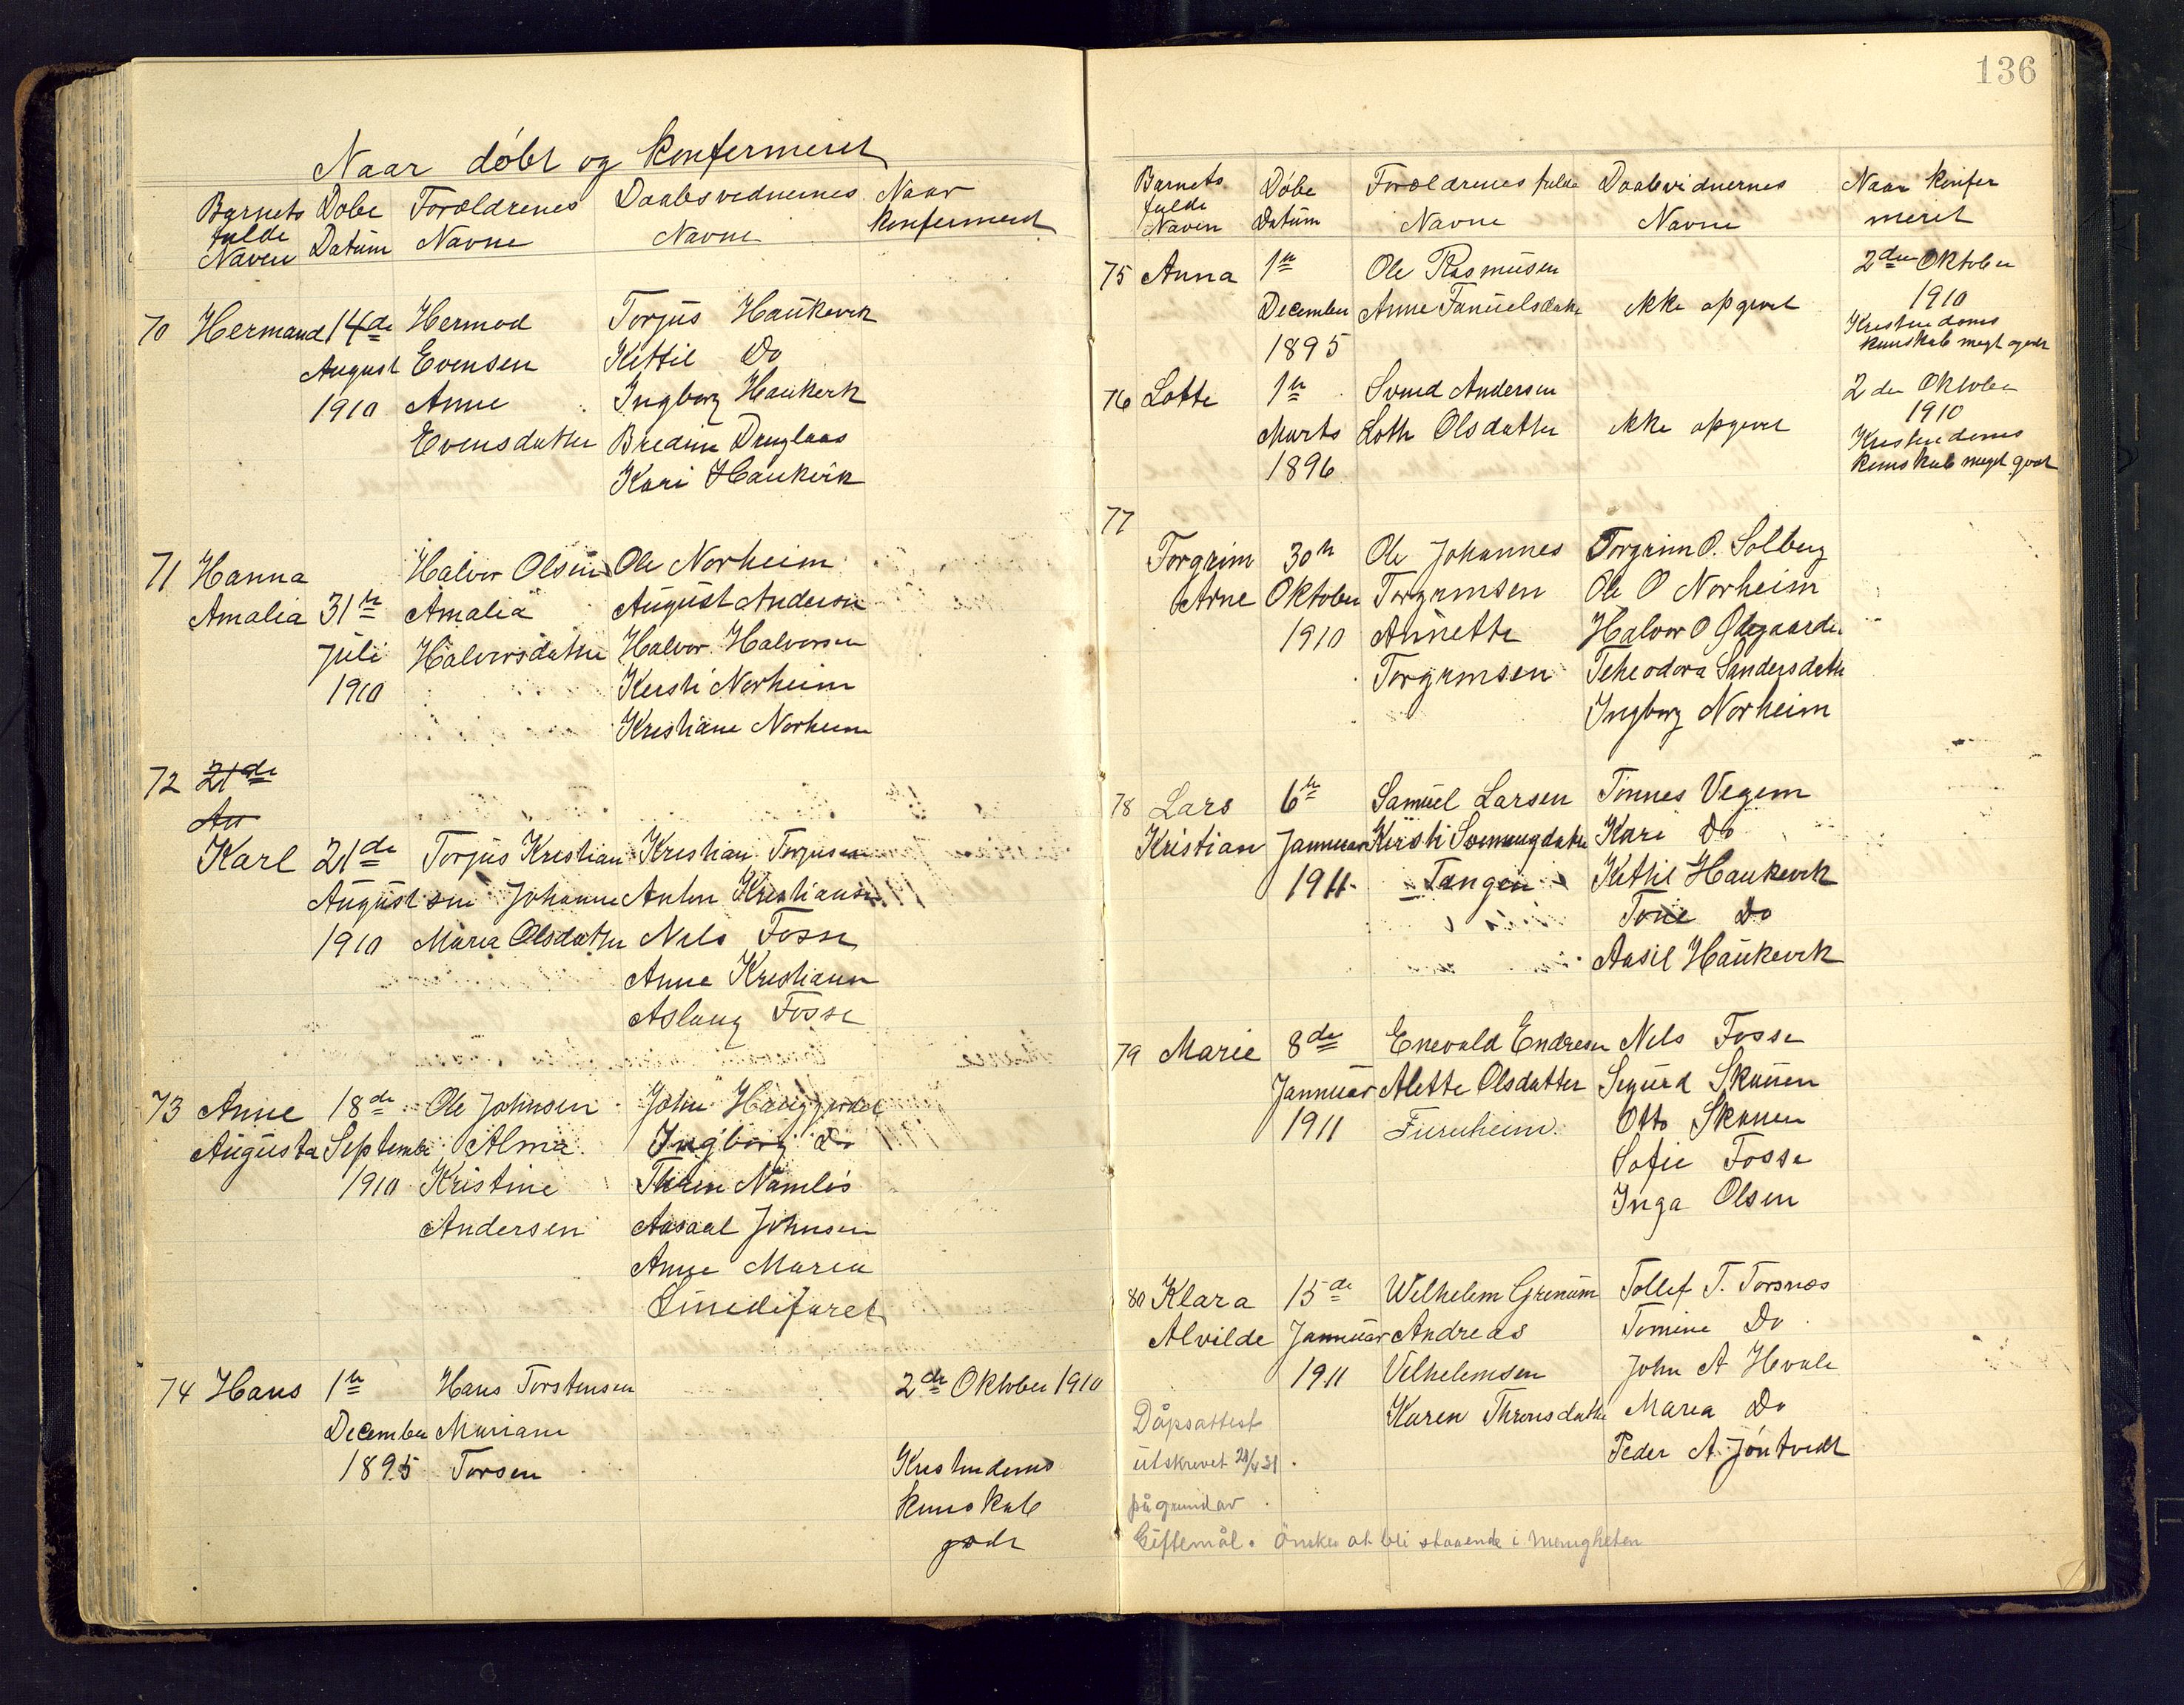 Naar döbt og konfermeret
Barnets fulde Navn
Dobe Datum
Forældrenes Navne
Daabsvednernes Navne
Naar konfermeret
70 Hermand 14de Hermod Torjus Haukevik
August Evensen Kittil Do
1910 Anne Ingborg Haukevik
Evensdatter Bredine
Kari Haukevik
71 Hanna Halvor Olsen Ole Norheim
Amalia 31te Amalia August Anderson
Juli Halvorsdatter Halvor Halvorsen
1910 Kersti Norheim
Kristiane Norheim
72 21de
An
Karl 21de Torjus Kristian Kristian Torjusen
August sen Johanne Anton Kristiansen
1910 Maria Olsdatter Nels Fosse
Anne Kristiansen
Aslaug Fosse
73 Anne 18de Ole Johnsen John
Augusta September Alma Ingborg Do
1910 Kristine
Andersen Johnsen
Anne Maria
74 Hans 1te Hans Torstensen 2de Oktober 1910
December Mariane
1895 Torsen Kristendoms
kunskab
godt
136
Barnets fulde Navn
Döbe Datum
Forældrenes fulde Navne
Daabsvidnernes Navne
Naar konfermeret
75 Anna 1te Ole Rasmusen 2den Oktober
December Anne Fanuelsdatter ikke opgivet 1910
1895 Kristendoms
kunskab megt godt
76 Lotte 1te Svend Andersen 2den Oktober
Marts Lotte Olsdatter ikke opgivet 1910
1896 Kristendoms
kunskab megt godt
77
Torgrim 30te Ole Johannes Torgrim O. Solberg
Arne Oktober Torgrimsen Ole O Norheim
1910 Annette Halvor O Ødegaarden
Torgrimsen Teheodora Sandersdatter
Ingborg Norheim
78 Lars 6te Samuel Larsen Tönnes Vegem
Kristian Januar Kirsti Kari Do
1911 Tangen Kittil Haukevik
Tone Do
Aasil Haukevik
79 Marie 8de Enevald Endresen Nels Fosse
Januar Alette Olsdatter Sigurd Skauen
1911 Furuheim Otto Skauen
Sofie Fosse
Inga Olsen
80 Klara 15de Wilhelem Grenum Tollef T. Torsnæs
Alvilde Januar Andreas Tomine Do
1911 Vilhelemsen John A Hvale
Karen Thronsdatter Marea Do
Peder A Jöntvedt
Dåpsattest
utskrevet 28/4 31
på grund av
Giftemål. Önsker at bli staaende i Menigheten